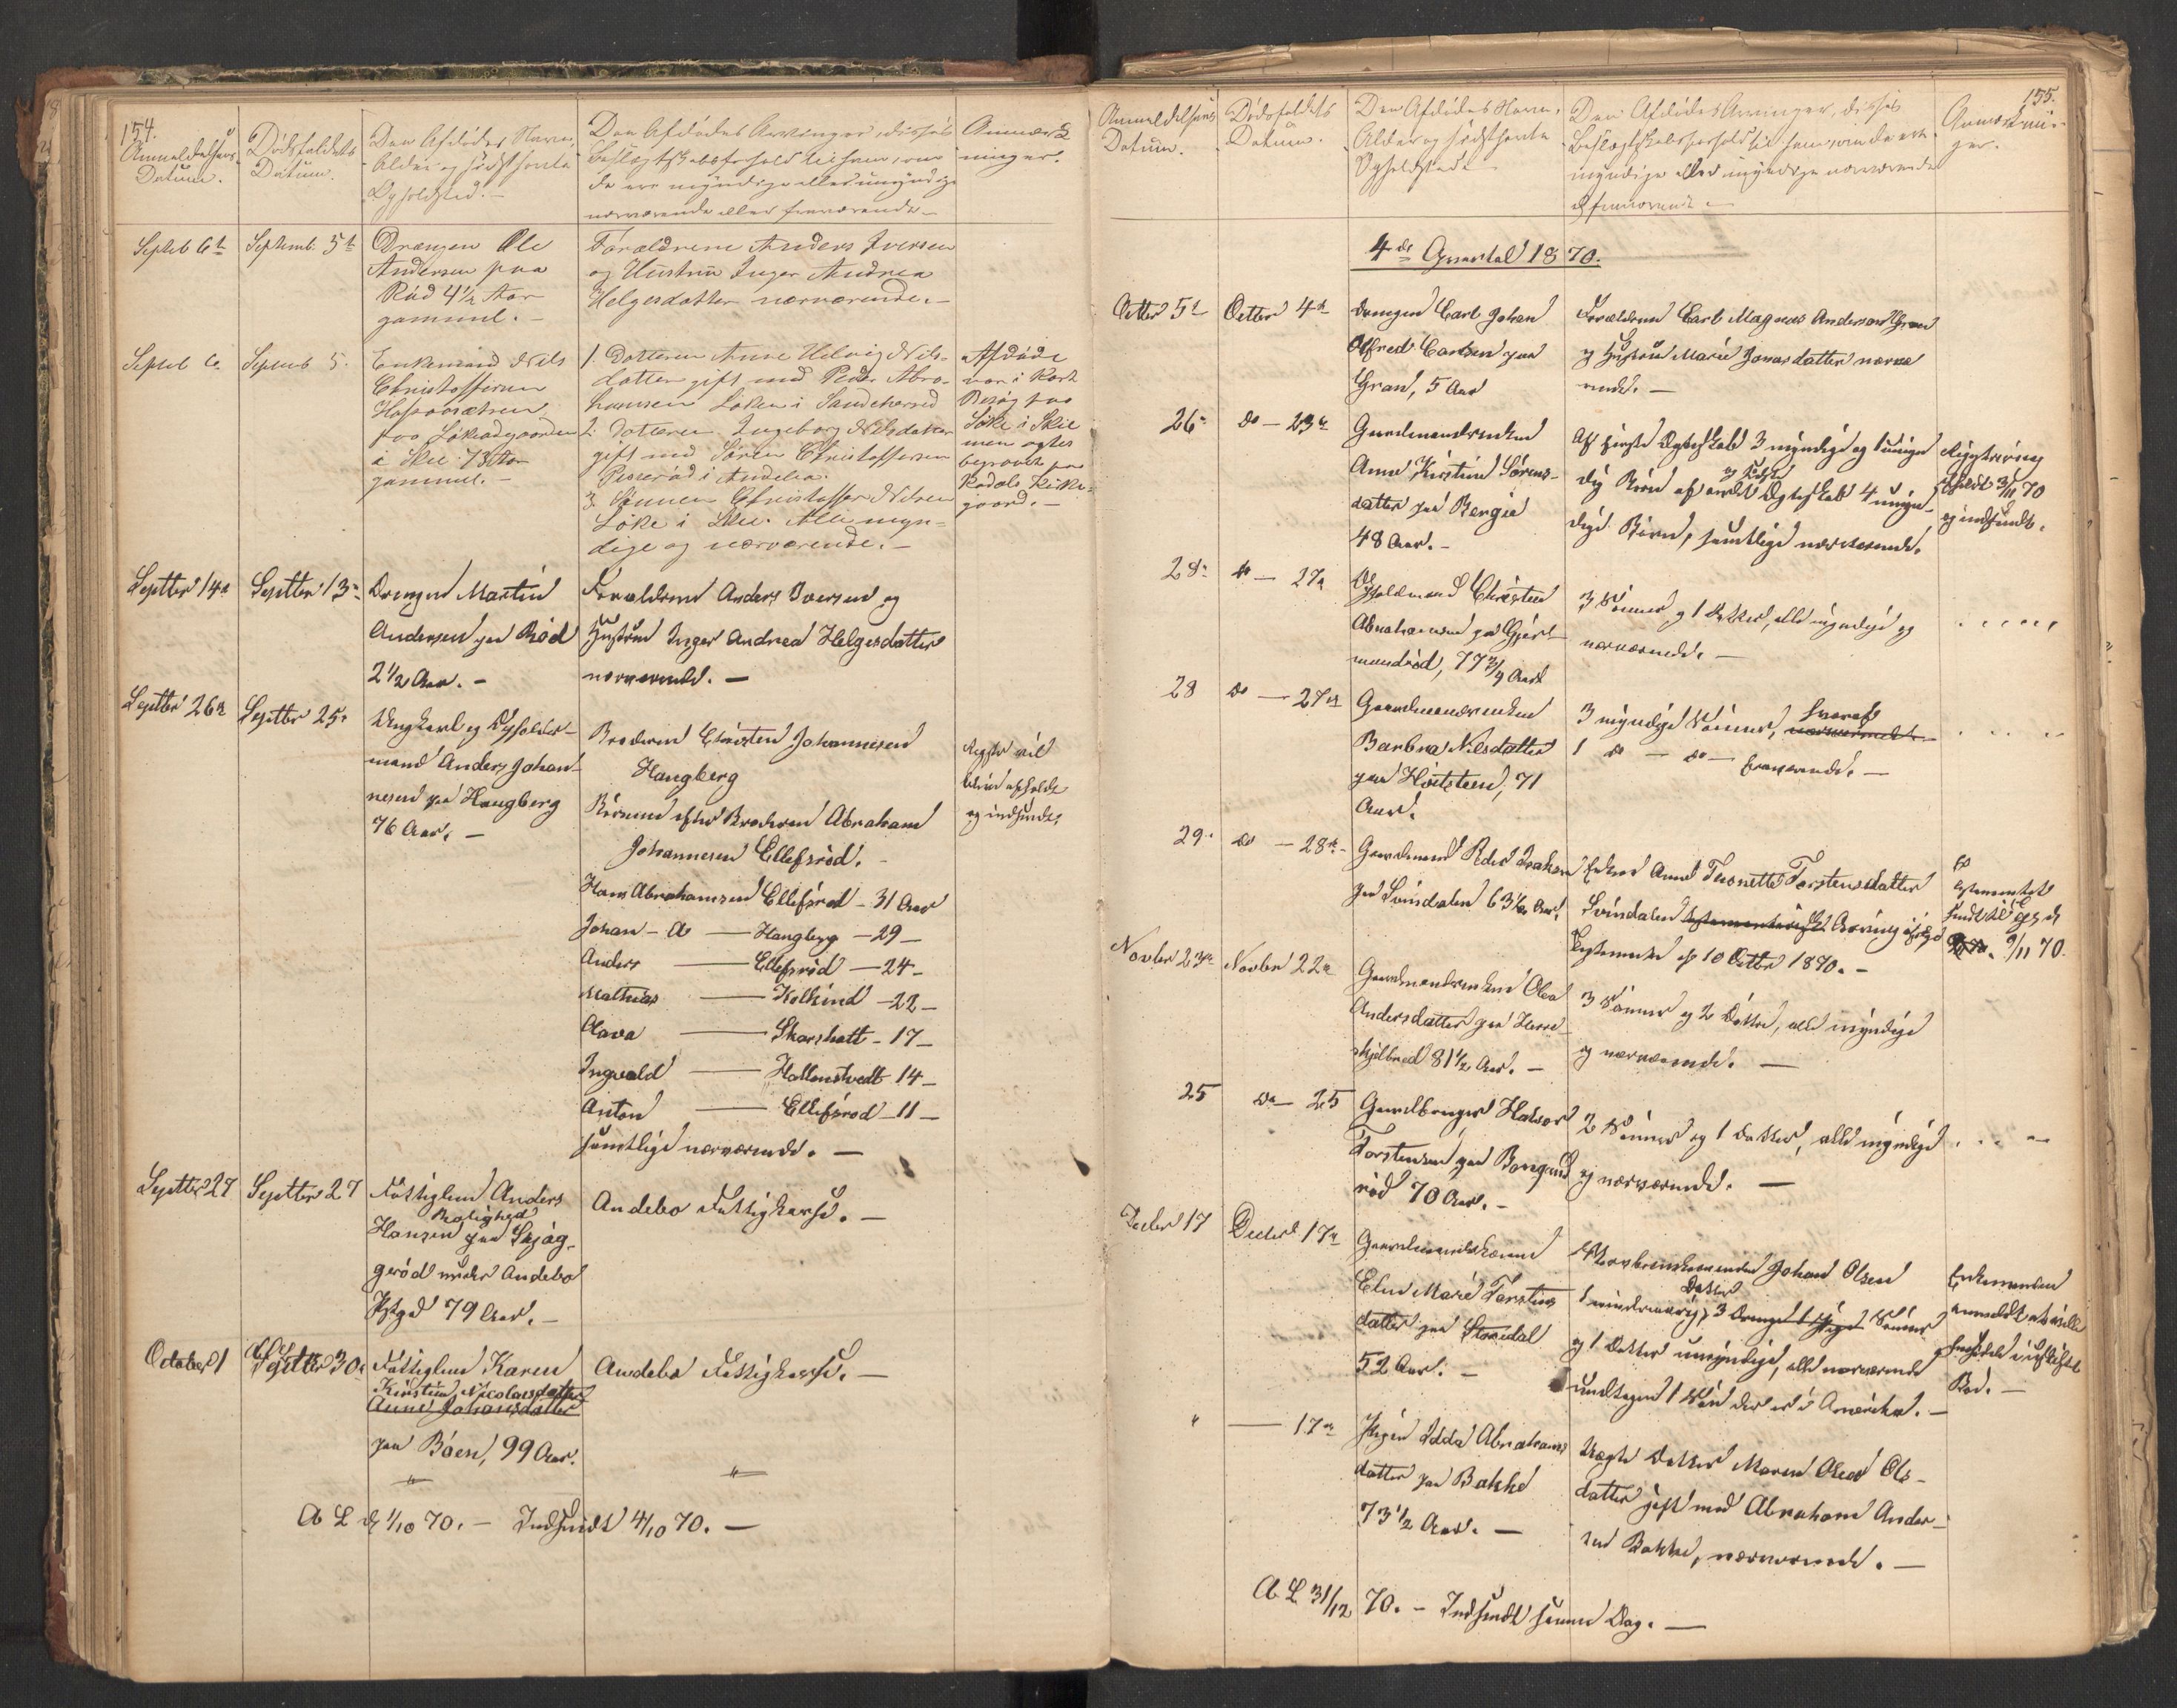 154.
Anmeldelsens
Datum.
Dødsfaldets
Datum.
Den Afdødes Navn,
Alder og sidst havte
Opholdsted.
Den Afdødes Arvinger, disses
Beslægtskabsforhold til ham, om
de ere myndige eller umyndige
nærværende eller fraværende
Anmærk
ninger.
Septeb 6te
Septemb. 5te
Drængen Ole
Andersen paa
Rød 4½ Aar
gammel.
Forældrene Anders Iversen
og Hustru Inger Andrea
Helgesdatter nærværende.
Septeb 6.
Septeb 5.
Enkemand Nils
Christoffersen
paa
i Skee 73 Aar
gammel.
1. Datteren Anne Helvig Nils-
datter gift med Peder Abra-
hamsen Løken i Sandeherred
2. Datteren Ingeborg Nilsdatter
gift med Søren Christoffersen
i Andebu
3. Sønnen Christoffer Nilsen
Løke i Skee. Alle myn-
dige og nærværende.
Afdøde
var i kort
Besøg paa
Løke i Skee
men agtes
begravet paa
Kodals Kirke-
gaard.
Septbr 14de
Septbr 13de
Drengen Martin
Andersen paa Rød
2½ Aar.
Forældrene Anders Iversen og
Hustru Inger Andrea Helgesdatter
nærværende.
Septbr 26de
Septbr 25de
Ungkarl og Opholds-
mand Anders Johan-
nesen paa Haugberg
76 Aar.
Broderen Christen Johannesen
Haugberg
Børnene efter Broderen Abraham
Johannesen Ellefsrød.
Hans Abrahamsen Ellefsrød - 31 Aar
Johan - A — Haugberg - 29 -
Anders — Ellefsrød - 24 -
Mathias — Kolkind - 22 -
Olava — Skarsholt - 17 -
Ingvald — Hallenstvedt 14 -
Anton — Ellefsrød - 11 -
samtlige nærværende.
Regstr vil
blive afholdt
og indsendt.
Septbr 27
Septbr 27
Fattiglem Anders
Hansen paa Skjøg-
gerød under Andebo
Prstgd 79 Aar.
Andebo Fattigkasse.
October 1
Septbr 30
Fattiglem Karen
Kirstine Nicolaisdatter
Anne Johansdatter
paa Bøen, 99 Aar.
Andebo Fattigkasse.
A L d 1/10 70. - Indsendt 4/10 70.
155.
Anmeldelsens
Datum.
Dødsfaldets
Datum.
Den Afdødes Navn,
Alder og sidst havte
Opholdsted.
Den Afdødes Arvinger, disses
Beslægtskabsforhold til ham, om de ere
myndige eller umyndige nærværende
el fraværende
Anmærknin-
ger.
4de Quartal 1870.
Octbr 5te
Octbr 4de
Drengen Carl Johan
Alfred Carlsen paa
Gran, 5 Aar
Forældrene Carl Magnus Anderson Gran
og Hustru Marie Jonasdatter nærvæ
rende.
26de
do - 23de
Gaardmandsenken
Anne Kirstine Sørens-
datter paa Bergie
48 Aar.
Af første Ægteskab 3 myndige og 1 umyn
dig Børn af andet Ægteskab 4 umyn-
dige Børn, samtlige nærværende.
Registrering
afholdt 3/11 70
og indsendt.
28de
do - 27de
Opholdsmand Christen
Abrahamsen paa Gjerl-
mandrød, 77¾ Aar
3 Sønner og 1 Datter, alle myndige og
nærværende.
28
do - 27de
Gaardmandsenken
Barbra Nilsdatter
paa Høitsteen, 71
Aar.
3 myndige Sønner, hvoraf nærværende
1 do - do - fraværende.
29de
do - 28de
Gaardmand Peder Isaksen
paa Svindalen 63½ Aar.
Enken Anne Thonette Torstensdatter
Svindalen testamentarisk Arving ifølge
Testamente af 10 Octbr 1870.
Testamentet
sendt til
9/11 70.
Novbr 23de
Novbr 22de
Gaardmandsenken Olea
Andersdatter paa Herre-
skjelbred 81½ Aar.
3 Sønner og 2 Døttre, alle myndige
og nærværende.
25
do - 25
Gaardbruger Halvor
Torstensen paa Borgund
rød 70 Aar.
2 Sønner og 1 Datter, alle myndige
og nærværende.
Decbr 17
Decbr 17de
Gaardmandskonen
Elen Marie Torstens
datter paa Stordal
52 Aar.
Johan Olsen
1 mindreaarig Datter 3 Sønner
og 1 Datter umyndige, alle nærværende
undtagen 1 Søn der er i Amerika.
Enkemanden
anmeldt at ville
hensidde i uskiftet
Bo.
"
— 17de
Pigen Idda Abrahams
datter paa Bakke
73½ Aar.
Uægte Datter Maren Olea Ols-
datter gift med Abraham Ander-
sen Bakke, nærværende.
A L 31/12 70. - Indsendt samme Dag.